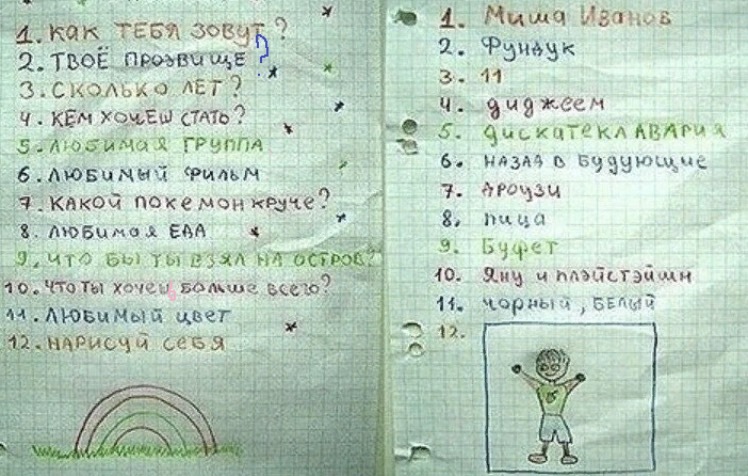 1. КАК ТЕБЯ ЗОВУТ?
2. ТВОЁ ПРОЗВИЩЕ?
3. СКОЛЬКО ЛЕТ?
4. КЕМ ХОЧЕШ СТАТЬ?
5. ЛЮБИМАЯ ГРУППА
6. ЛЮБИМЫЙ ФИЛЬМ
7. КАКОЙ ПОКЕМОН КРУЧЕ?
8. ЛЮБИМАЯ ЕДА
9. ЧТО БЫ ТЫ ВЗЯЛ НА ОСТРОВ?
10. ЧТО ТЫ ХОЧЕШ БОЛЬШЕ ВСЕГО?
11. ЛЮБИМЫЙ ЦВЕТ
12. НАРИСУЙ СЕБЯ
1. Миша Иванов
2. Фундук
3. 11
4. диджеем
5. дискатека АВАРИЯ
6. НАЗАД В будующие
7. дроузи
8. пица
9. Буфет
10. Яну и плэйстэйшн
11. чорный, БЕЛЫЙ
12.